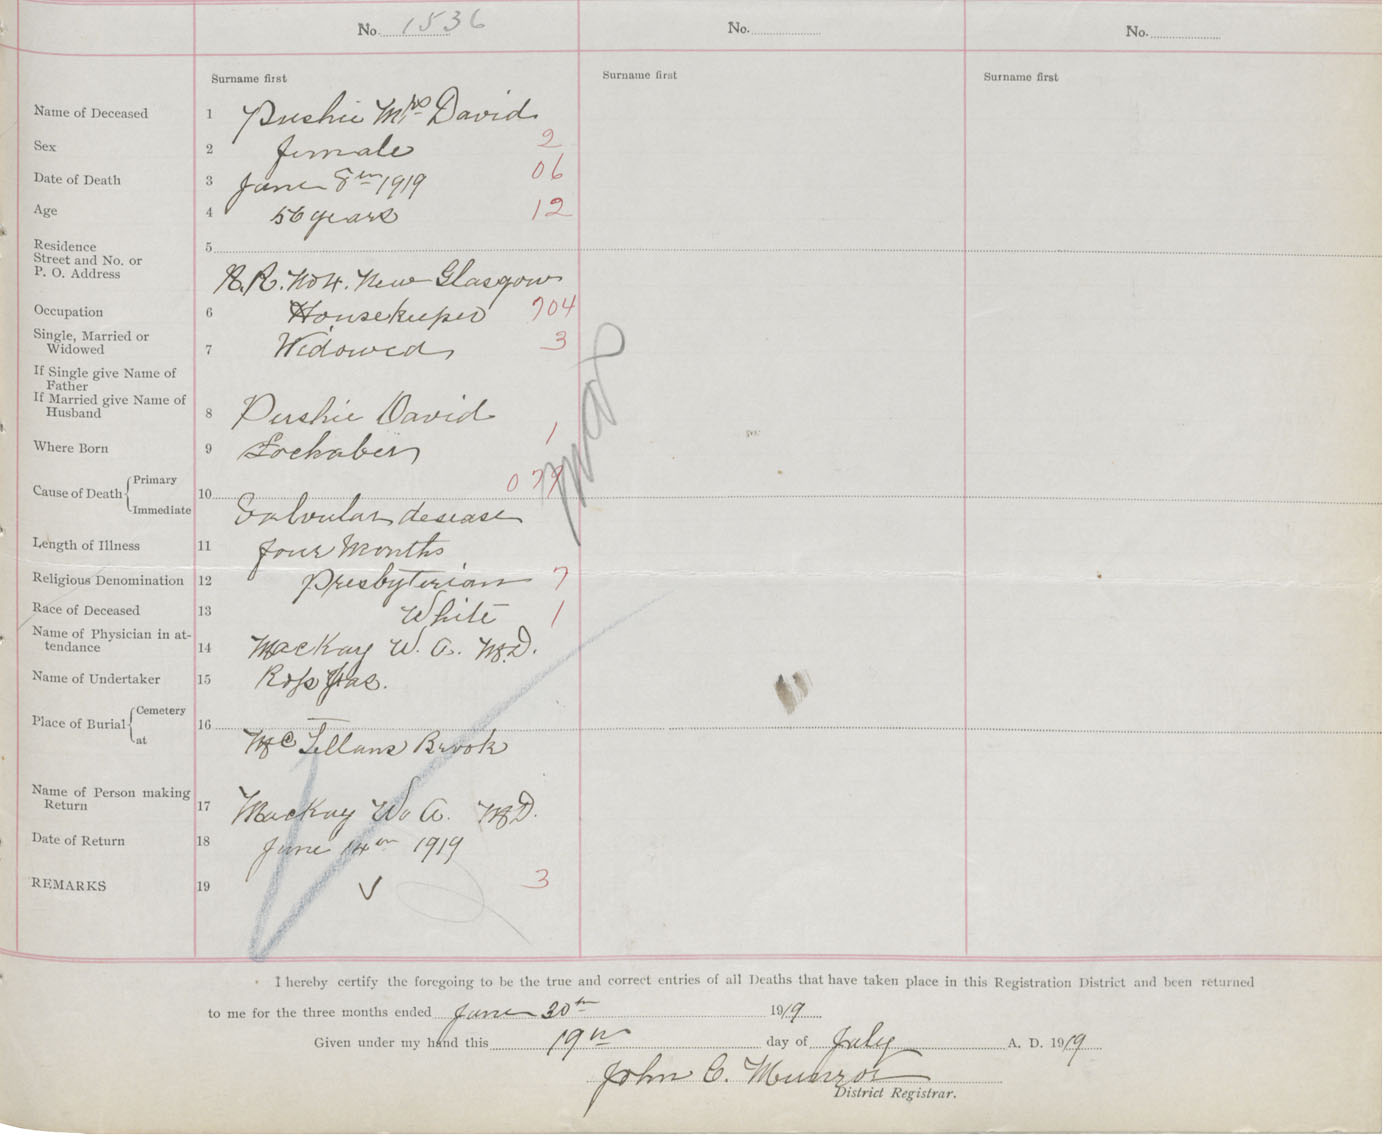 No. 1536
No.
No.
Surname first
Surname first
Surname first
Name of Deceased 1 Pushie Mrs David
Sex 2 female 2
Date of Death 3 June 8th 1919 06
Age 4 56 years 12
Residence 5
Street and No. or
P. O. Address R.R. No 4. New Glasgow
Occupation 6 Housekeeper 704
Single, Married or
Widowed 7 Widowed 3
If Single give Name of
Father
If Married give Name of
Husband 8 Pushie David
1
Where Born 9 Lochaber
079
Cause of Death Primary
10
Immediate Valvular desease
Length of Illness 11 four Months
Religious Denomination 12 Presbyterian 7
Race of Deceased 13 White 1
Name of Physician in at-
tendance 14 MacKay W. A. M.D.
Name of Undertaker 15 Ross Jas.
Place of Burial Cemetery
16
at McLellans Brook
Name of Person making
Return 17 MacKay W. A. M.D.
Date of Return 18 June 14th 1919
REMARKS 19 3
I hereby certify the foregoing to be the true and correct entries of all Deaths that have taken place in this Registration District and been returned
to me for the three months ended June 30th 1919
Given under my hand this 19th day of July A. D. 1919
John C. Munro
District Registrar.